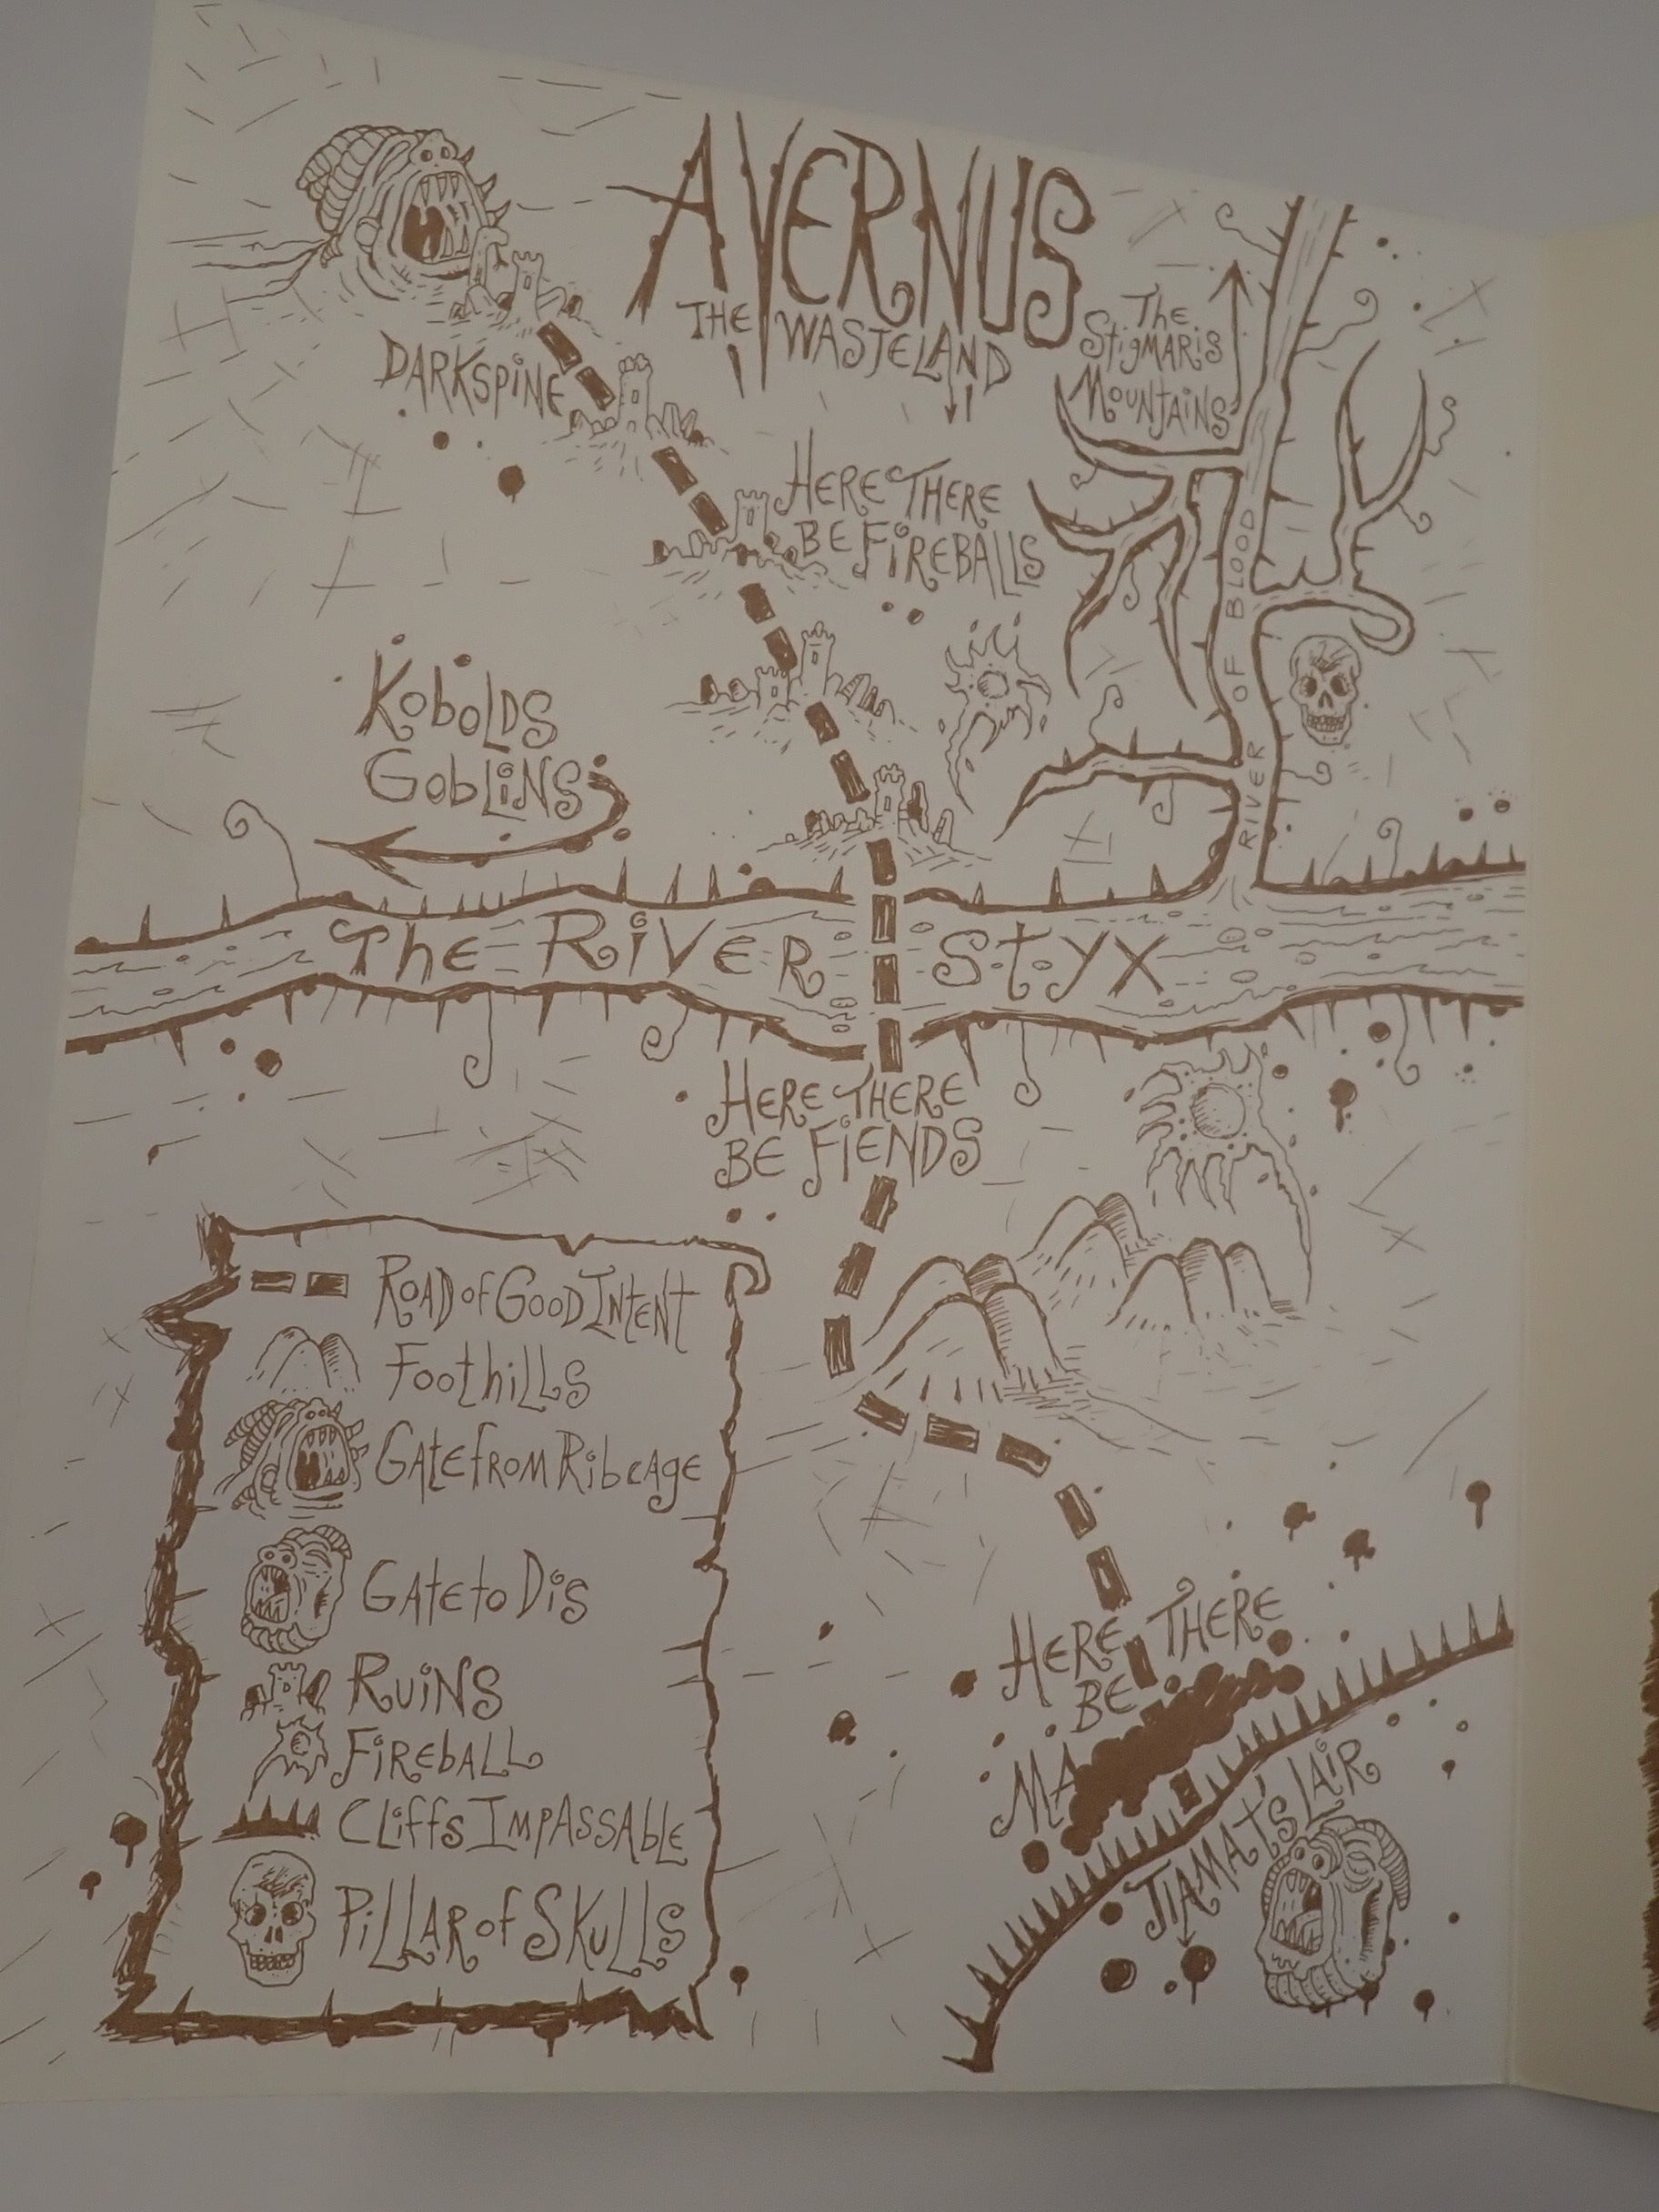 AVERNUS
THE WASTELAND
The
Stigmaris
Mountains
DARKSPINE
HERE THERE
BE FIREBALLS
RIVER OF BLOOD
KOBOLDS
GOBLINS
The RIVER Styx
HERE THERE
BE FIENDS
ROAD OF GOOD INTENT
Foothills
GATE FROM Ribcage
GATE to Dis
RUINS
FIREBALL
CLiffs IMPASSAble
PILLAR of SKULLS
HERE THERE
BE
MA
TIAMAT'S LAIR